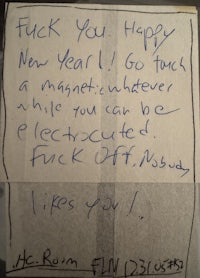 Fuck You. Happy
New Year!! Go touch
a magnetic whatever
while you can be
electrocuted.
Fuck Off. Nobody
likes you!